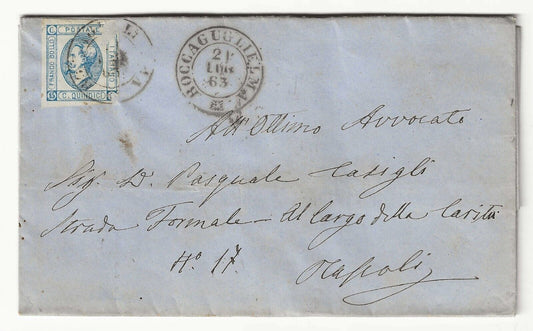 C. POSTALE
FRANCO BOLLO
C. QUINDICI
ROCCAGUGLIELMA
21
LUG
63
All'Ottimo Avvocato
Sig. D. Pasquale Casigli
Strada Formale - Al largo della Carità
N.o 17.
Napoli